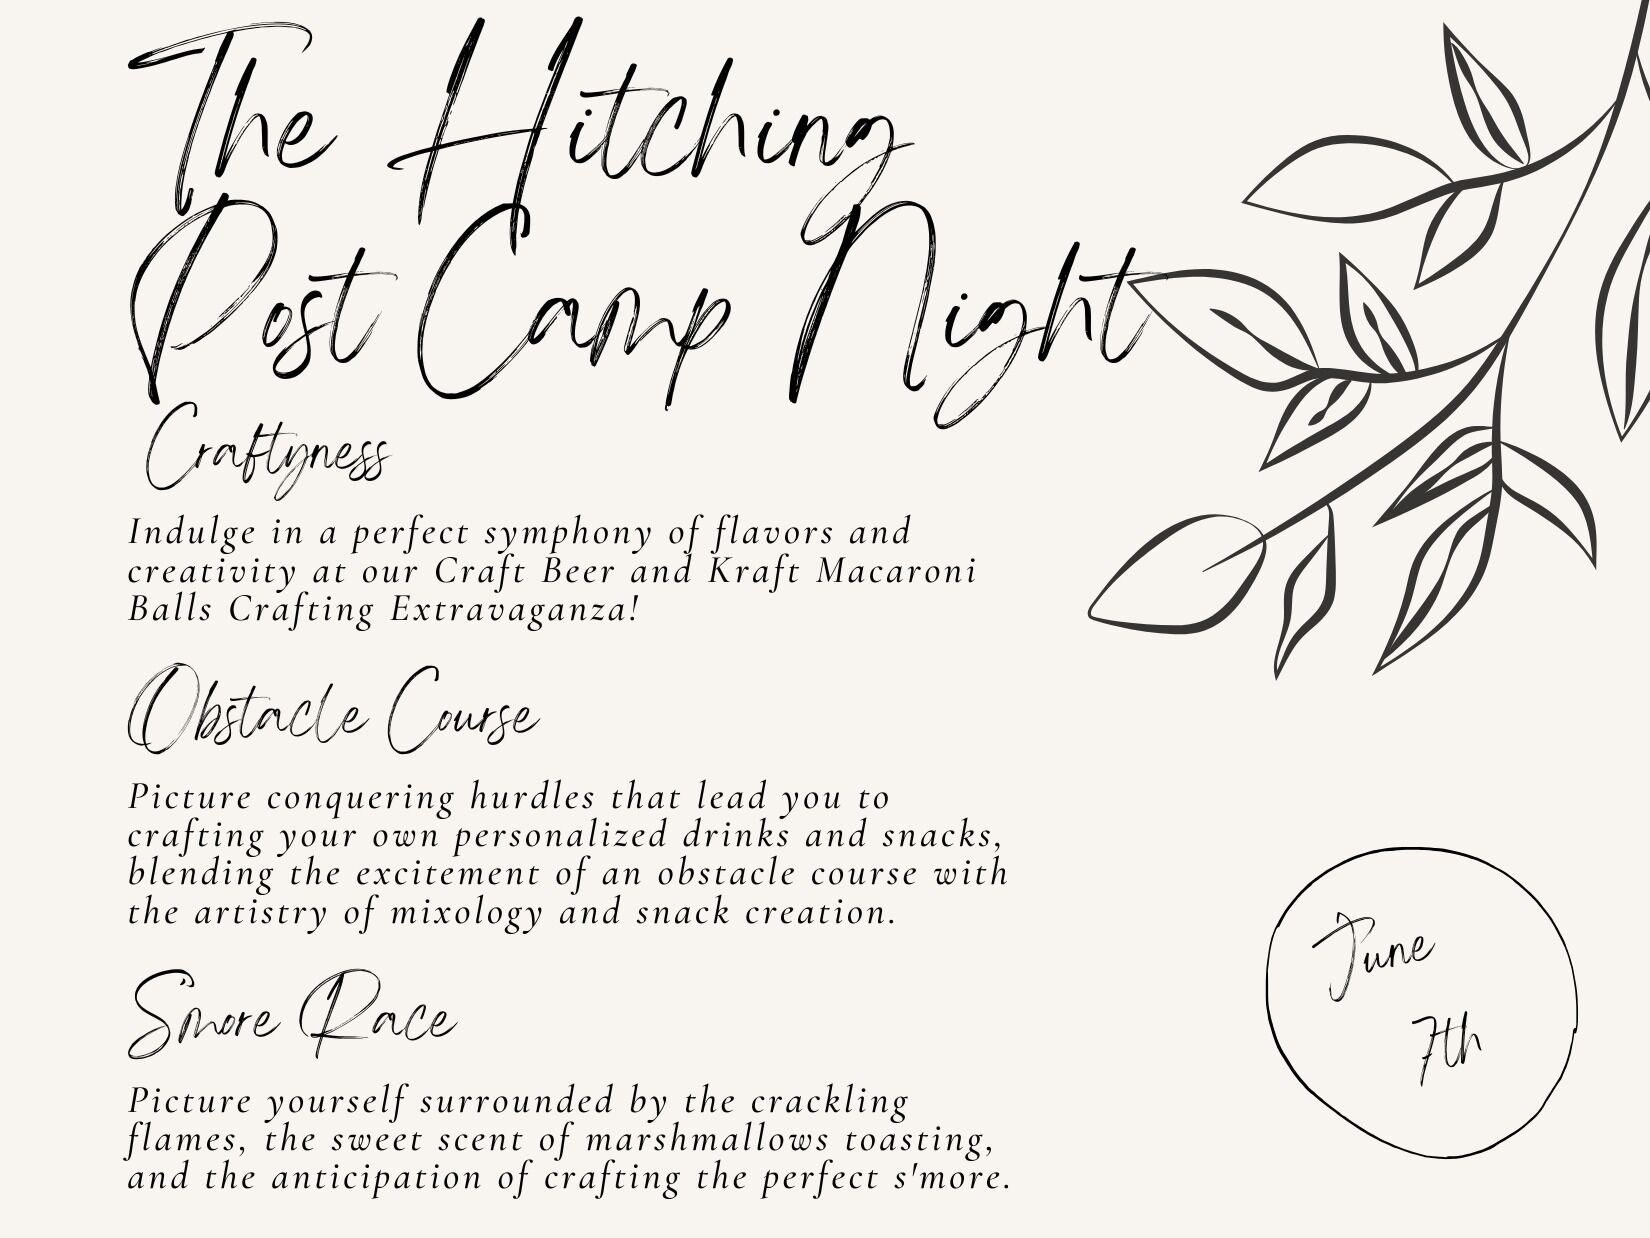 The Hitching
Post Camp Night
Craftyness
Indulge in a perfect symphony of flavors and
creativity at our Craft Beer and Kraft Macaroni
Balls Crafting Extravaganza!
Obstacle Course
Picture conquering hurdles that lead you to
crafting your own personalized drinks and snacks,
blending the excitement of an obstacle course with
the artistry of mixology and snack creation.
Smore Race
Picture yourself surrounded by the crackling
flames, the sweet scent of marshmallows toasting,
and the anticipation of crafting the perfect s'more.
June
7th